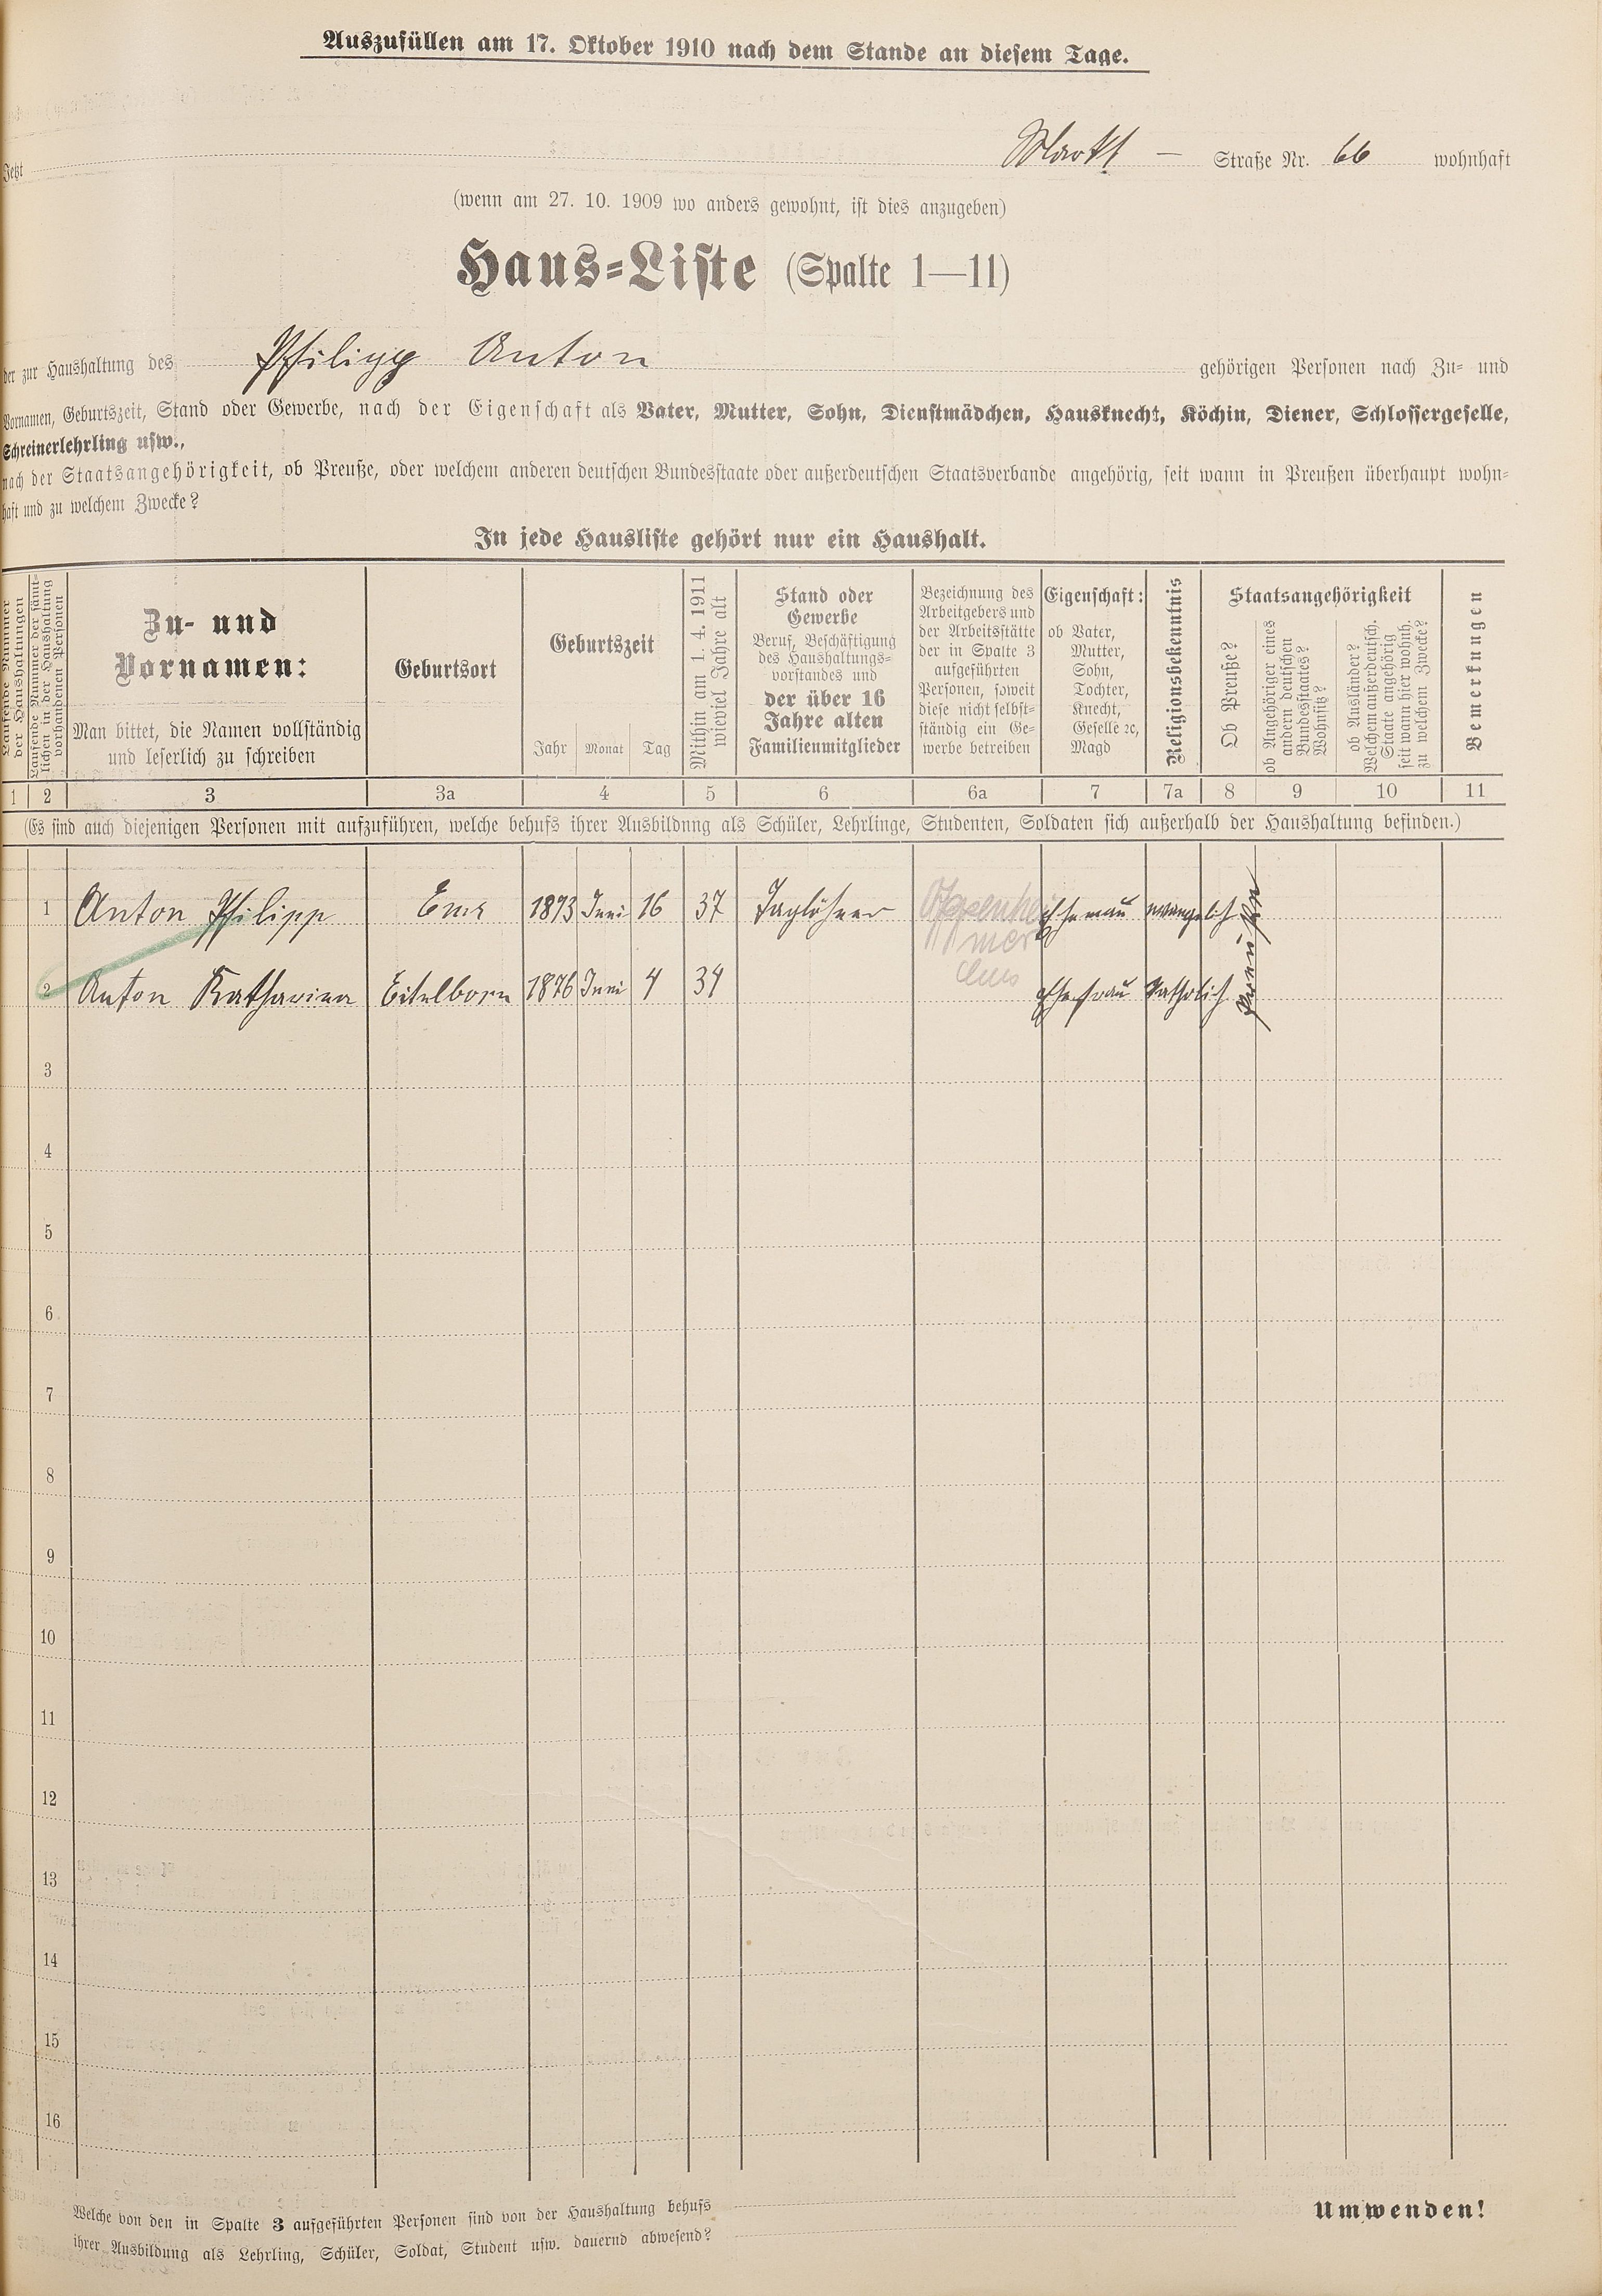 Auszufüllen am 17. Oktober 1910 nach dem Stande an diesem Tage.
Jetzt Markt — Straße Nr. 66 wohnhaft
(wenn am 27. 10. 1909 wo anders gewohnt, ist dies anzugeben)
Haus-Liste (Spalte 1—11)
der zur Haushaltung des Philipp Anton gehörigen Personen nach Zu- und
Vornamen, Geburtszeit, Stand oder Gewerbe, nach der Eigenschaft als Vater, Mutter, Sohn, Dienstmädchen, Hausknecht, Köchin, Diener, Schlossergeselle,
Schreinerlehrling usw.,
nach der Staatsangehörigkeit, ob Preuße, oder welchem anderen deutschen Bundesstaate oder außerdeutschen Staatsverbande angehörig, seit wann in Preußen überhaupt wohn-
haft und zu welchem Zwecke?
In jede Hausliste gehört nur ein Haushalt.
Laufende Nummer
der Haushaltungen
Laufende Nummer der sämt-
lichen in der Haushaltung
vorhandenen Personen
Zu- und
Vornamen:
Man bittet, die Namen vollständig
und leserlich zu schreiben
Geburtsort
Geburtszeit
Jahr Monat Tag
Mithin am 1. 4. 1911
wieviel Jahre alt
Stand oder
Gewerbe
Beruf, Beschäftigung
des Haushaltungs-
vorstandes und
der über 16
Jahre alten
Familienmitglieder
Bezeichnung des
Arbeitgebers und
der Arbeitsstätte
der in Spalte 3
aufgeführten
Personen, soweit
diese nicht selbst-
ständig ein Ge-
werbe betreiben
Eigenschaft:
ob Vater,
Mutter,
Sohn,
Tochter,
Knecht,
Geselle ꝛc,
Magd
Religionsbekenntnis
Staatsangehörigkeit
Ob Preuße?
ob Angehöriger eines
andern deutschen
Bundesstaates?
Wohnsitz?
ob Ausländer?
Welchem außerdeutsch.
Staate angehörig
seit wann hier wohnh.
zu welchem Zwecke?
Bemerkungen
1 2 3 3a 4 5 6 6a 7 7a 8 9 10 11
(Es sind auch diejenigen Personen mit aufzuführen, welche behufs ihrer Ausbildung als Schüler, Lehrlinge, Studenten, Soldaten sich außerhalb der Haushaltung befinden.)
1 Anton Philipp Ems 1873 Juni 16 37 Taglöhner Oppenhei Ehemann evangelish Preußen
mer
Ems
2 Anton Katharina Eitelborn 1876 Juni 4 34 Ehefrau katholish
3
4
5
6
7
8
9
10
11
12
13
14
15
16
Welche von den in Spalte 3 aufgeführten Personen sind von der Haushaltung behufs
ihrer Ausbildung als Lehrling, Schüler, Soldat, Student usw. dauernd abwesend?
Umwenden!